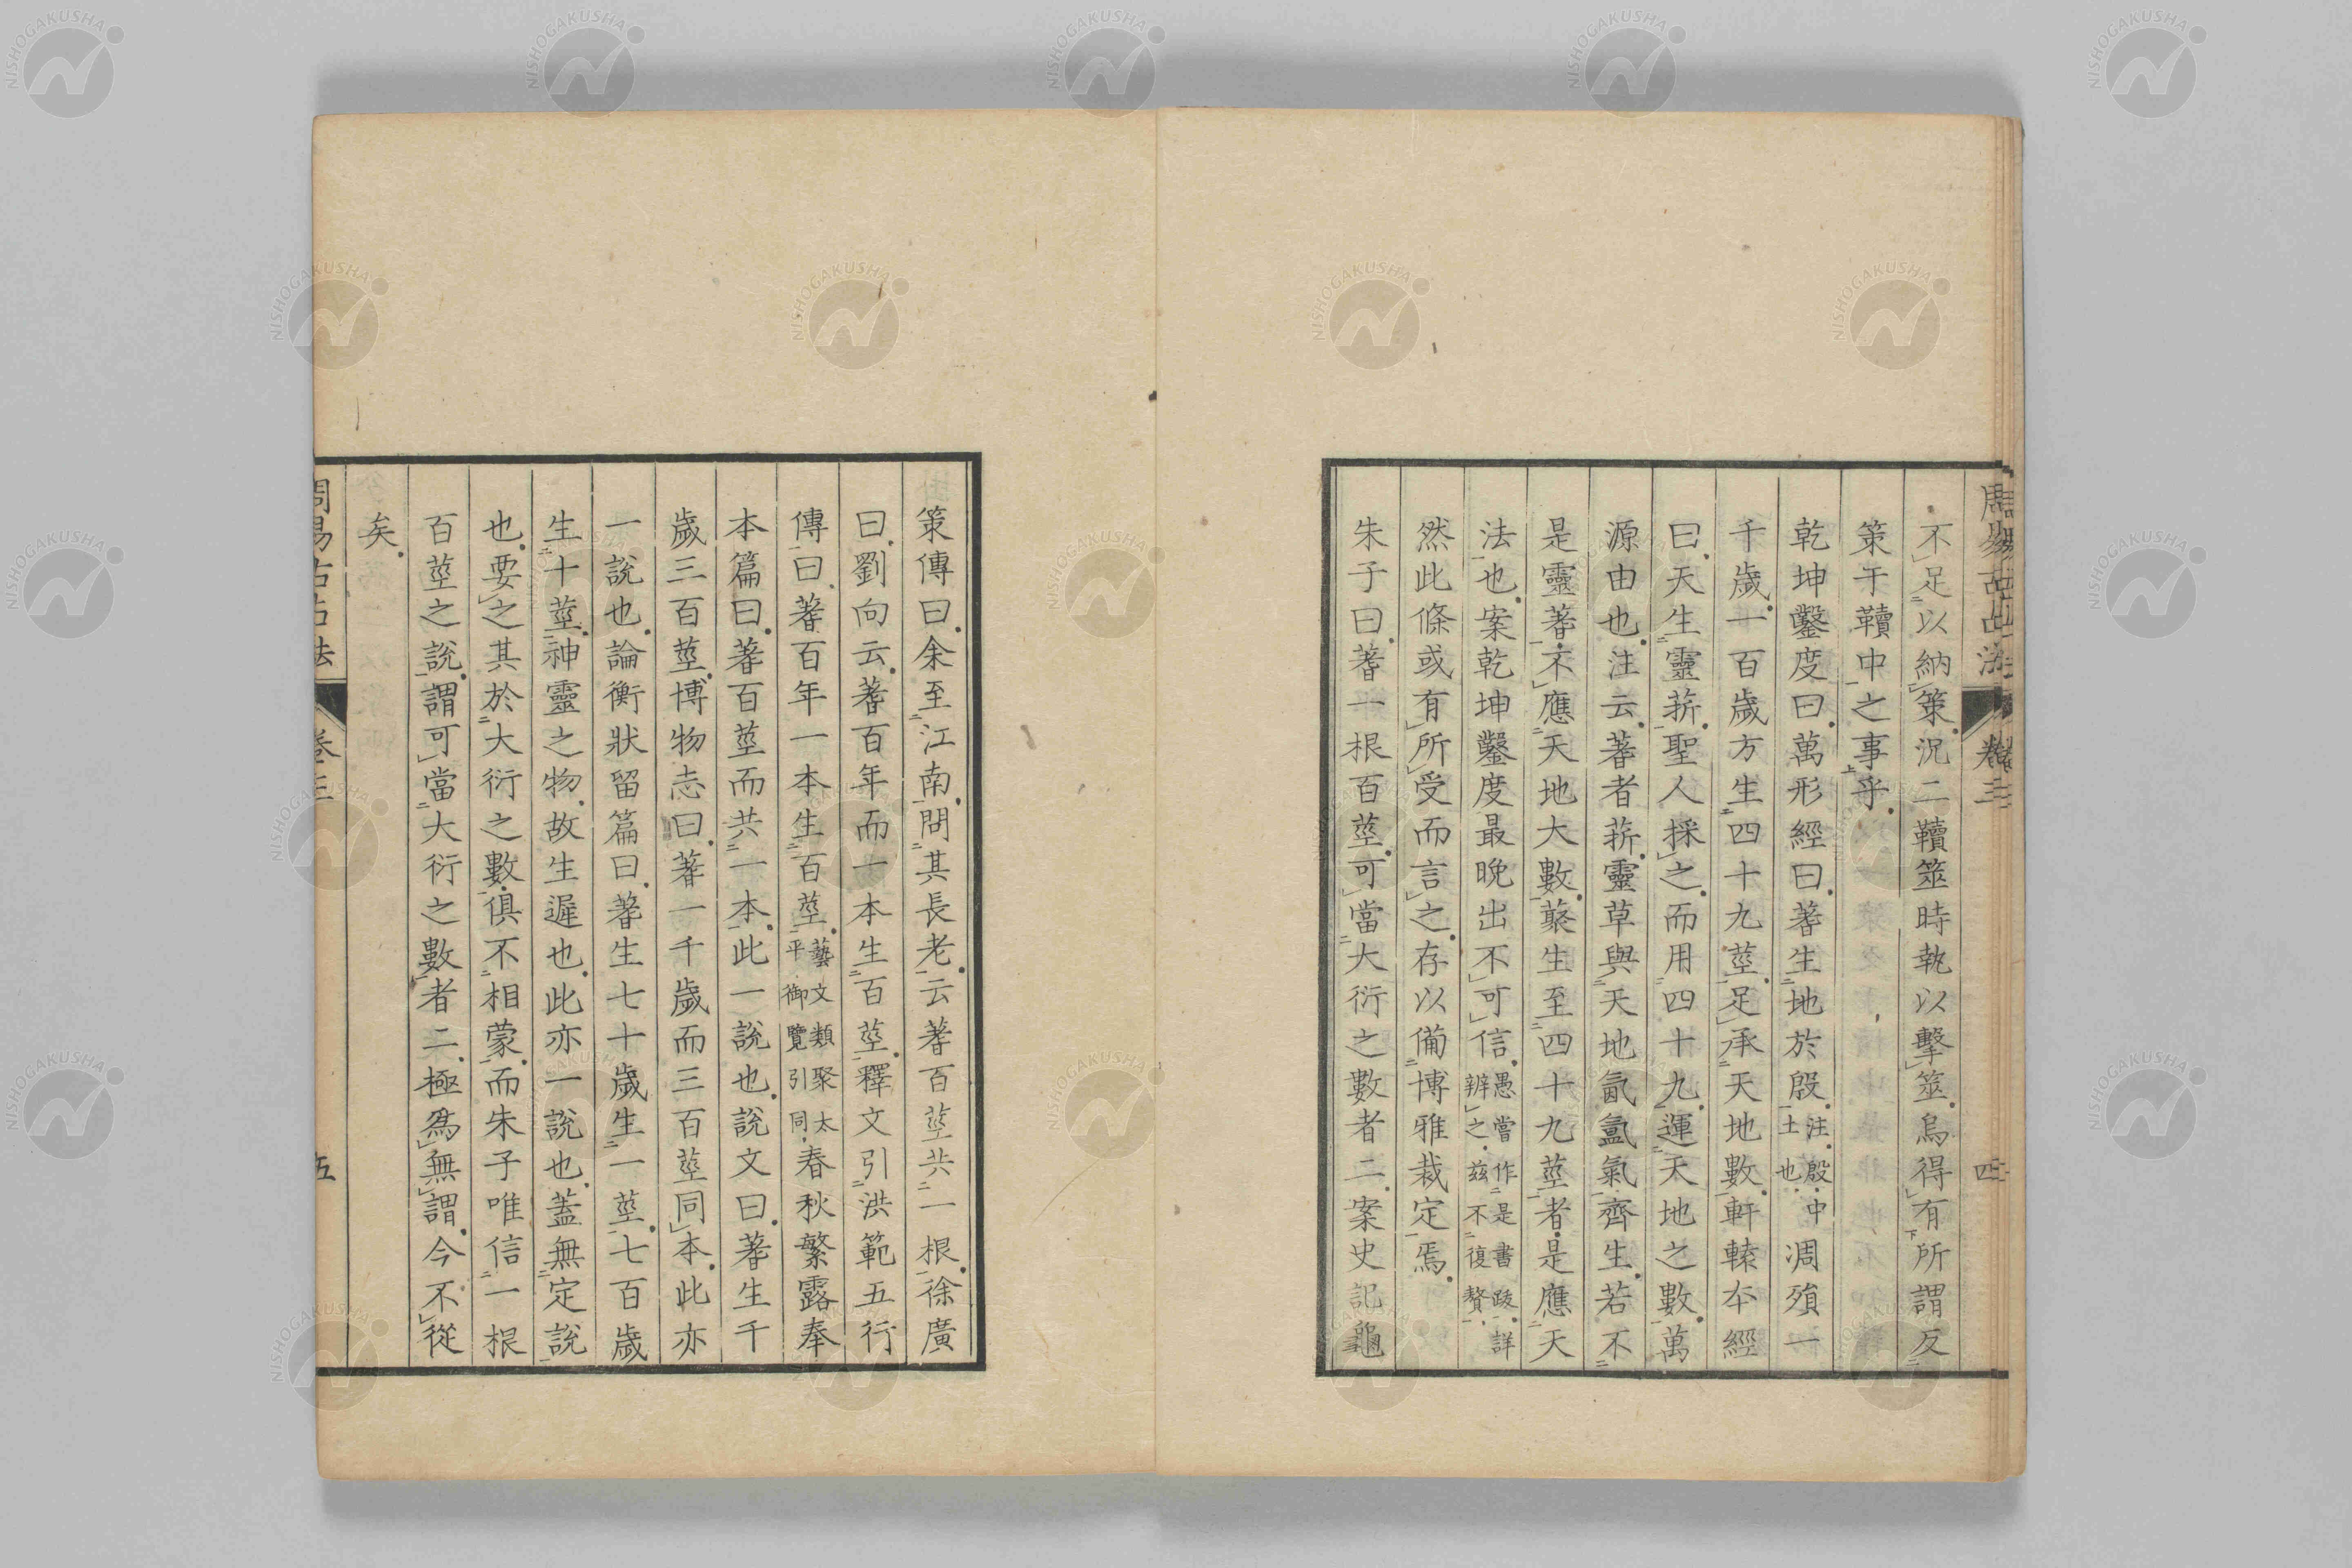 周易古占法 卷三 四
不足以納策。況二韇筮時執以擊筮。烏得有所謂反
策于韇中之事乎。
乾坤鑿度曰。萬形經曰。蓍生地於殷。注。殷。中土也。凋殞一
千歲。一百歲方生四十九莖。足承天地數。軒轅本經
曰。天生靈菥。聖人採之。而用四十九。運天地之數。萬
源由也。注云。蓍者菥。靈草與天地氤氳氣齊生。若不
是靈蓍。不應天地大數。蓍生至四十九莖者。是應天
法也。案乾坤鑿度最晚出不可信。愚嘗作是書跋。詳辨之。茲不復贅。
然此條或有所受而言之。存以備博雅裁定焉。
朱子曰。蓍一根百莖。可當大衍之數者二。案史記龜
策傳曰。余至江南。問其長老。云蓍百莖共一根。徐廣
曰。劉向云。蓍百年而一本生百莖。釋文引洪範五行
傳曰。蓍百年一本生百莖。藝文類聚太平御覽引同。春秋繁露奉
本篇曰。蓍百莖而共一本。此一說也。說文曰。蓍生千
歲三百莖。博物志曰。蓍一千歲而三百莖同本。此亦
一說也。論衡狀留篇曰。蓍生七十歲生一莖。七百歲
生十莖。神靈之物。故生遲也。此亦一說也。蓋無定說
也。要之其於大衍之數。俱不相蒙。而朱子唯信一根
百莖之說。謂可當大衍之數者二。極爲無謂。今不從
矣。
周易古占法 卷三 五
NISHOGAKUSHA